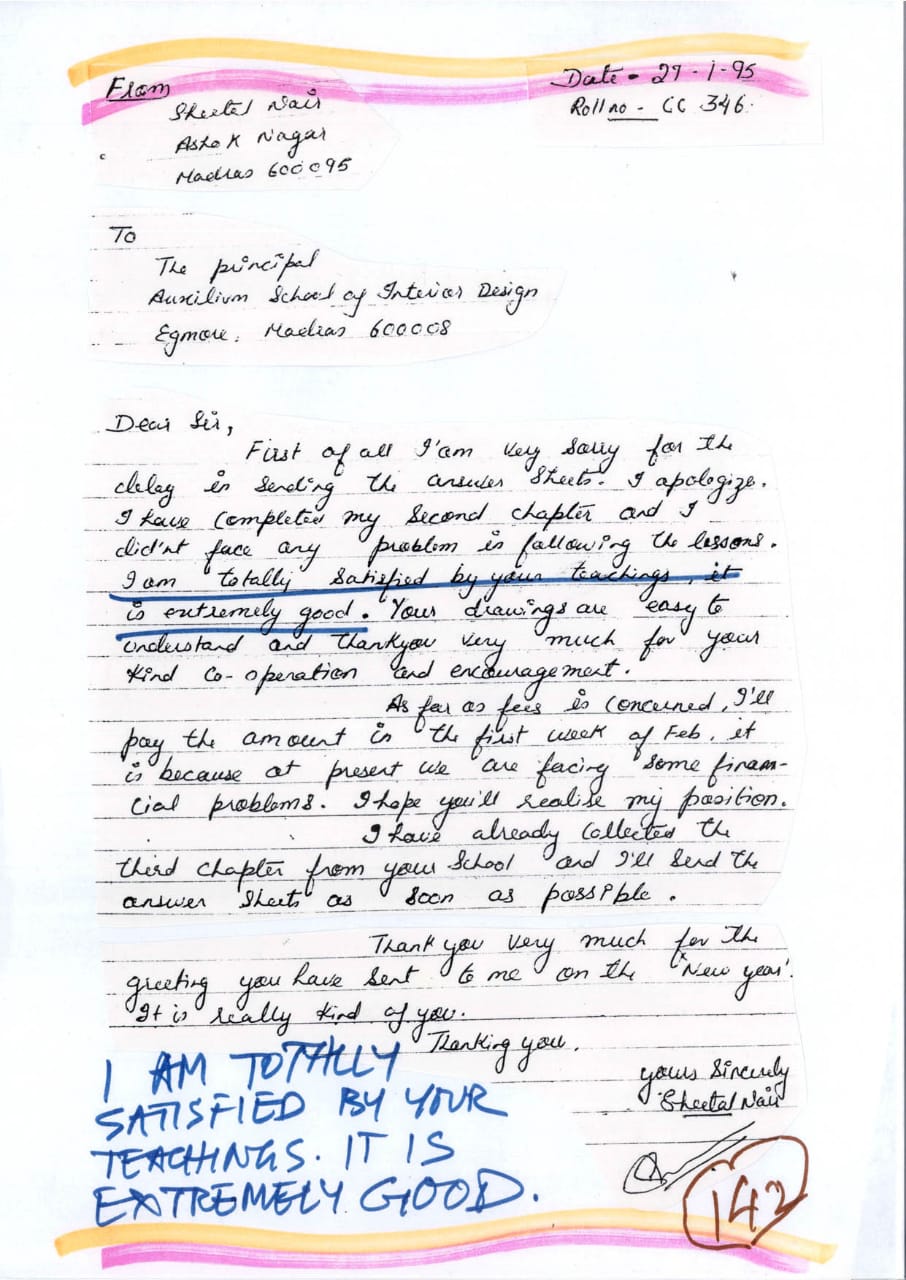 From
Date - 27-1-95
Sheetal Nair
Roll no - CC 346.
Ashok Nagar
Madras 600095
To
The principal
Auxilium School of Interior Design
Egmore, Madras 600008
Dear Sir,
First of all I'am very sorry for the
delay in sending the answer sheets. I apologize.
I have completed my second chapter and I
did'nt face any problem in following the lessons.
I am totally satisfied by your teachings, it
is extremely good. Your drawings are easy to
understand and thankyou very much for your
kind co-operation and encouragement.
As far as fees is concerned, I'll
pay the amount in the first week of Feb, it
is because at present we are facing some finan-
cial problems. I hope you'll realise my position.
I have already collected the
third chapter from your school and I'll send the
answer sheets as soon as possible.
Thank you very much for the
greeting you have sent to me on the 'New year'.
It is really kind of you.
Thanking you.
yours Sincerely
Sheetal Nair
I AM TOTALLY
SATISFIED BY YOUR
TEACHINGS. IT IS
EXTREMELY GOOD.
142